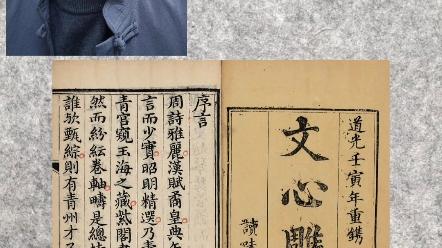 道光壬寅年重鐫
文心雕
讀味
序言
周詩雅麗漢賦喬皇典午
言而少實昭明精選乃青
青宫窺玉海之藏紫閣書
然而紛紜卷軸疇是總
誰欤甄綜則有青州才子